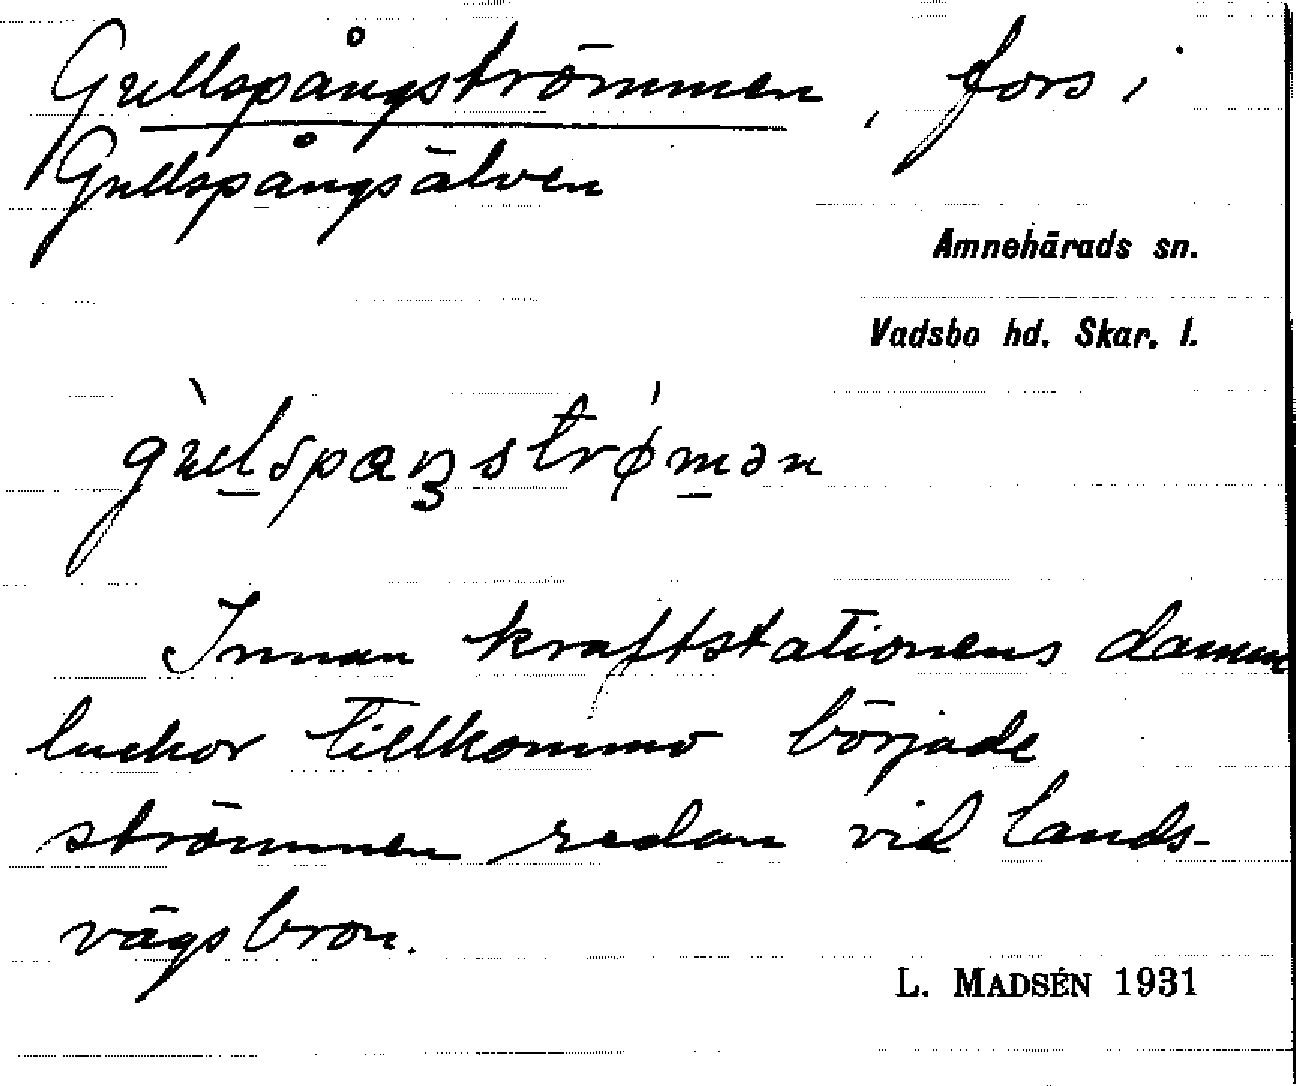 Gullspångströmmen, fors i
Gullspångsälven
Amnehärads sn.
Vadsbo hd. Skar. l.
gu̇̀l̲spaŋstrǿm̲ən
Innan kraftstationens damm
luckor tillkommo började
strömmen redan vid lands-
vägsbron.
L. MADSÉN 1931